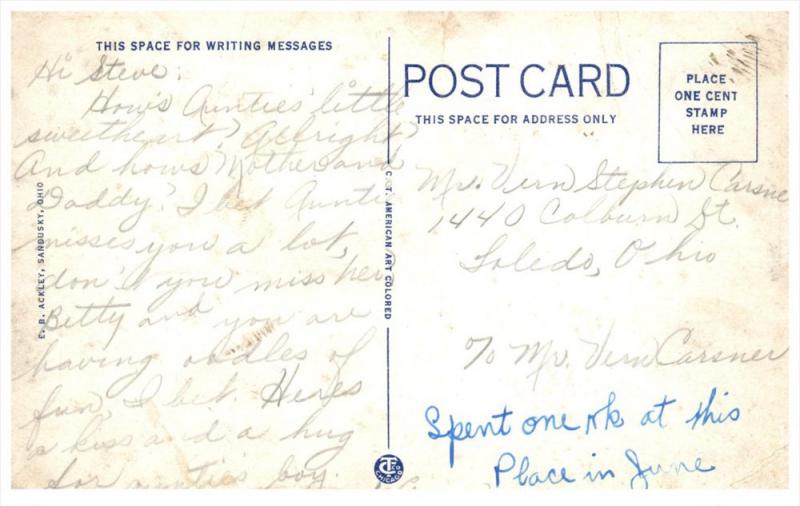 THIS SPACE FOR WRITING MESSAGES
Hi Steve:
How's Aunties' little
sweetheart? Allright?
And hows Mother and
Daddy? I bet Auntie
misses you a lot,
don't you miss her
Betty and you are
having oodles of
fun, I bet. Heres
a kiss and a hug
for aunties boy.
E. B. ACKLEY, SANDUSKY, OHIO
C. T. AMERICAN ART COLORED
POST CARD
THIS SPACE FOR ADDRESS ONLY
PLACE
ONE CENT
STAMP
HERE
Mr. Vern Stephen Carsner
1440 Colburn St.
Toledo, Ohio
% Mr. Vern Carsner
Spent one wk at this
Place in June
CHICAGO